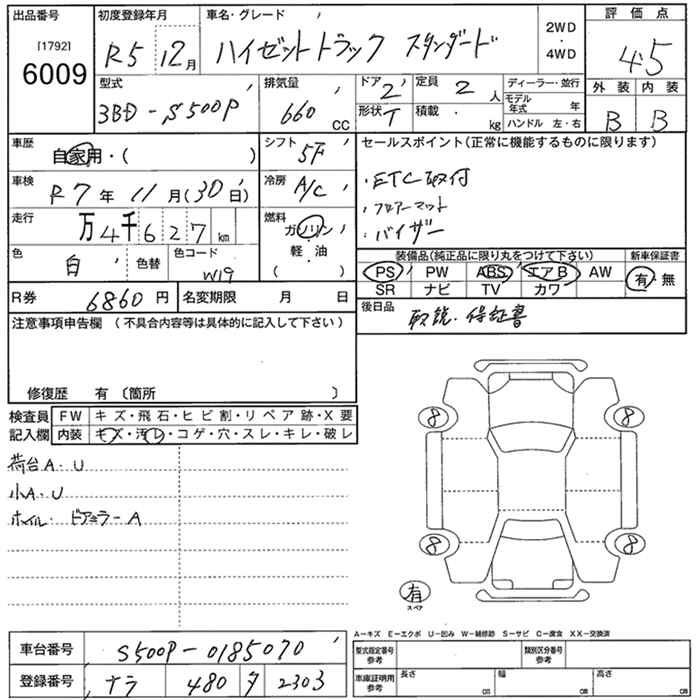 出品番号 初度登録年月 車名・グレード 2WD・4WD 評価点
[1792]
6009 R5 12月 ハイゼットトラック スタンダード 4.5
型式 排気量 ドア 2 定員 2 人 ディーラー・並行 外装 内装
3BD-S500P 660 CC 形状 T 積載 kg モデル年式 年 B B
ハンドル 左・右
車歴 自家用・( ) シフト 5F セールスポイント(正常に機能するものに限ります)
車検 R7年 11月(30日) 冷房 A/C ・ETC取付
・フロアーマット
走行 万4千627km 燃料 ガソリン・軽油( ) ・バイザー
色 白 色替 色コード W19 装備品(純正品に限り丸をつけて下さい) 新車保証書
PS PW ABS エアB AW 有・無
SR ナビ TV カワ
R券 6860円 名変期限 月 日 後日品 取説・保証書
注意事項申告欄 (不具合内容等は具体的に記入して下さい)
修復歴 有 〔箇所 〕
検査員 FW キズ・飛石・ヒビ割・リペア跡・X要
記入欄 内装 キズ・汚レ・コゲ・穴・スレ・キレ・破レ
荷台A・U
小A・U
ホイル・ドアミラーA
8 8
8 8
有
スペア
A−キズ E−エクボ U−凹み W−補修跡 S−サビ C−腐食 XX−交換済
車台番号 S500P-0185070 型式指定番号 参考 類別区分番号 参考
登録番号 ナラ 480 タ 2303 車庫証明用 参考 長さ cm 幅 cm 高さ cm